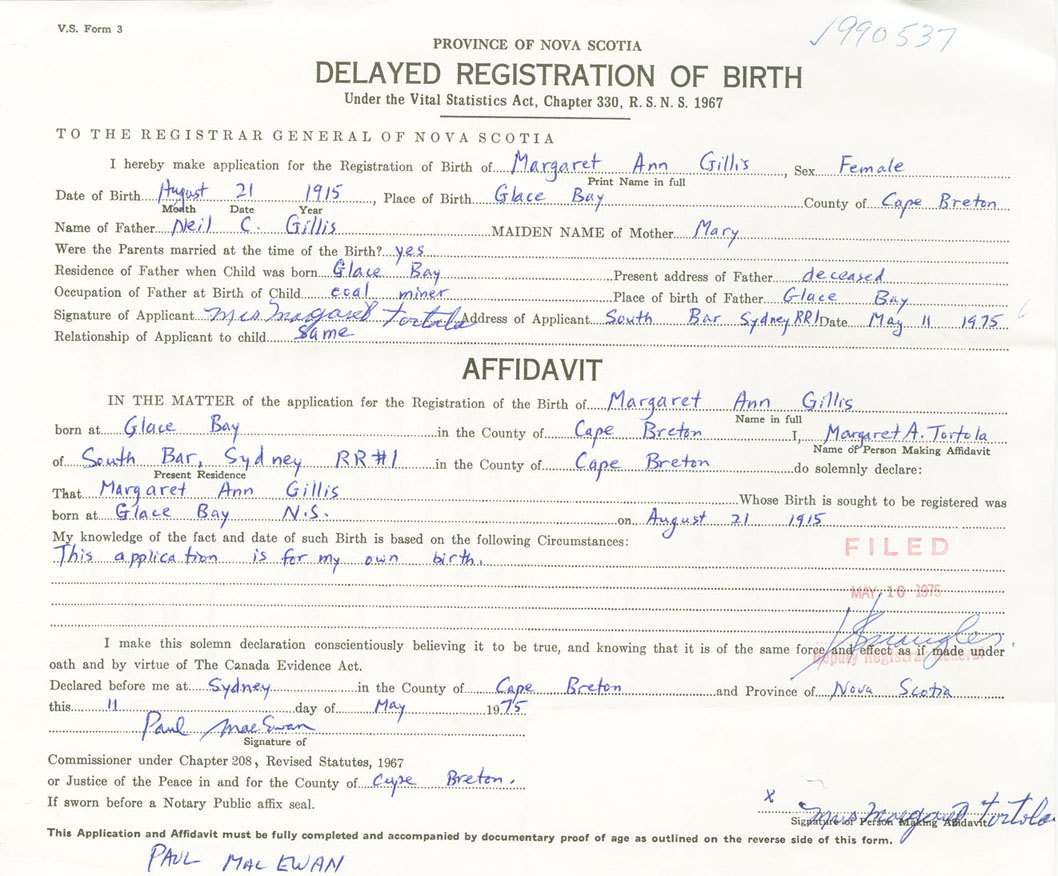 V.S. Form 3
1990537
PROVINCE OF NOVA SCOTIA
DELAYED REGISTRATION OF BIRTH
Under the Vital Statistics Act, Chapter 330, R. S. N. S. 1967
TO THE REGISTRAR GENERAL OF NOVA SCOTIA
I hereby make application for the Registration of Birth of Margaret Ann Gillis, Sex Female
Print Name in full
Date of Birth August 21 1915, Place of Birth Glace Bay County of Cape Breton
Month Date Year
Name of Father Neil C. Gillis MAIDEN NAME of Mother Mary
Were the Parents married at the time of the Birth? yes
Residence of Father when Child was born Glace Bay Present address of Father deceased
Occupation of Father at Birth of Child coal miner Place of birth of Father Glace Bay
Signature of Applicant Mrs Margaret Tortola Address of Applicant South Bar Sydney RR1 Date May 11 1975
Relationship of Applicant to child Same
AFFIDAVIT
IN THE MATTER of the application for the Registration of the Birth of Margaret Ann Gillis
Name in full
born at Glace Bay in the County of Cape Breton I, Margaret A. Tortola
Name of Person Making Affidavit
of South Bar, Sydney RR#1 in the County of Cape Breton do solemnly declare:
Present Residence
That Margaret Ann Gillis Whose Birth is sought to be registered was
born at Glace Bay N.S. on August 21 1915
My knowledge of the fact and date of such Birth is based on the following Circumstances:
This application is for my own birth.
FILED
MAY 16 1975
I make this solemn declaration conscientiously believing it to be true, and knowing that it is of the same force and effect as if made under
Deputy Registrar General
oath and by virtue of The Canada Evidence Act.
Declared before me at Sydney in the County of Cape Breton and Province of Nova Scotia
this 11 day of May 1975
Paul MacEwan
Signature of
Commissioner under Chapter 208, Revised Statutes, 1967
or Justice of the Peace in and for the County of Cape Breton.
If sworn before a Notary Public affix seal.
x Mrs Margaret Tortola
Signature of Person Making Affidavit
This Application and Affidavit must be fully completed and accompanied by documentary proof of age as outlined on the reverse side of this form.
PAUL MAC EWAN